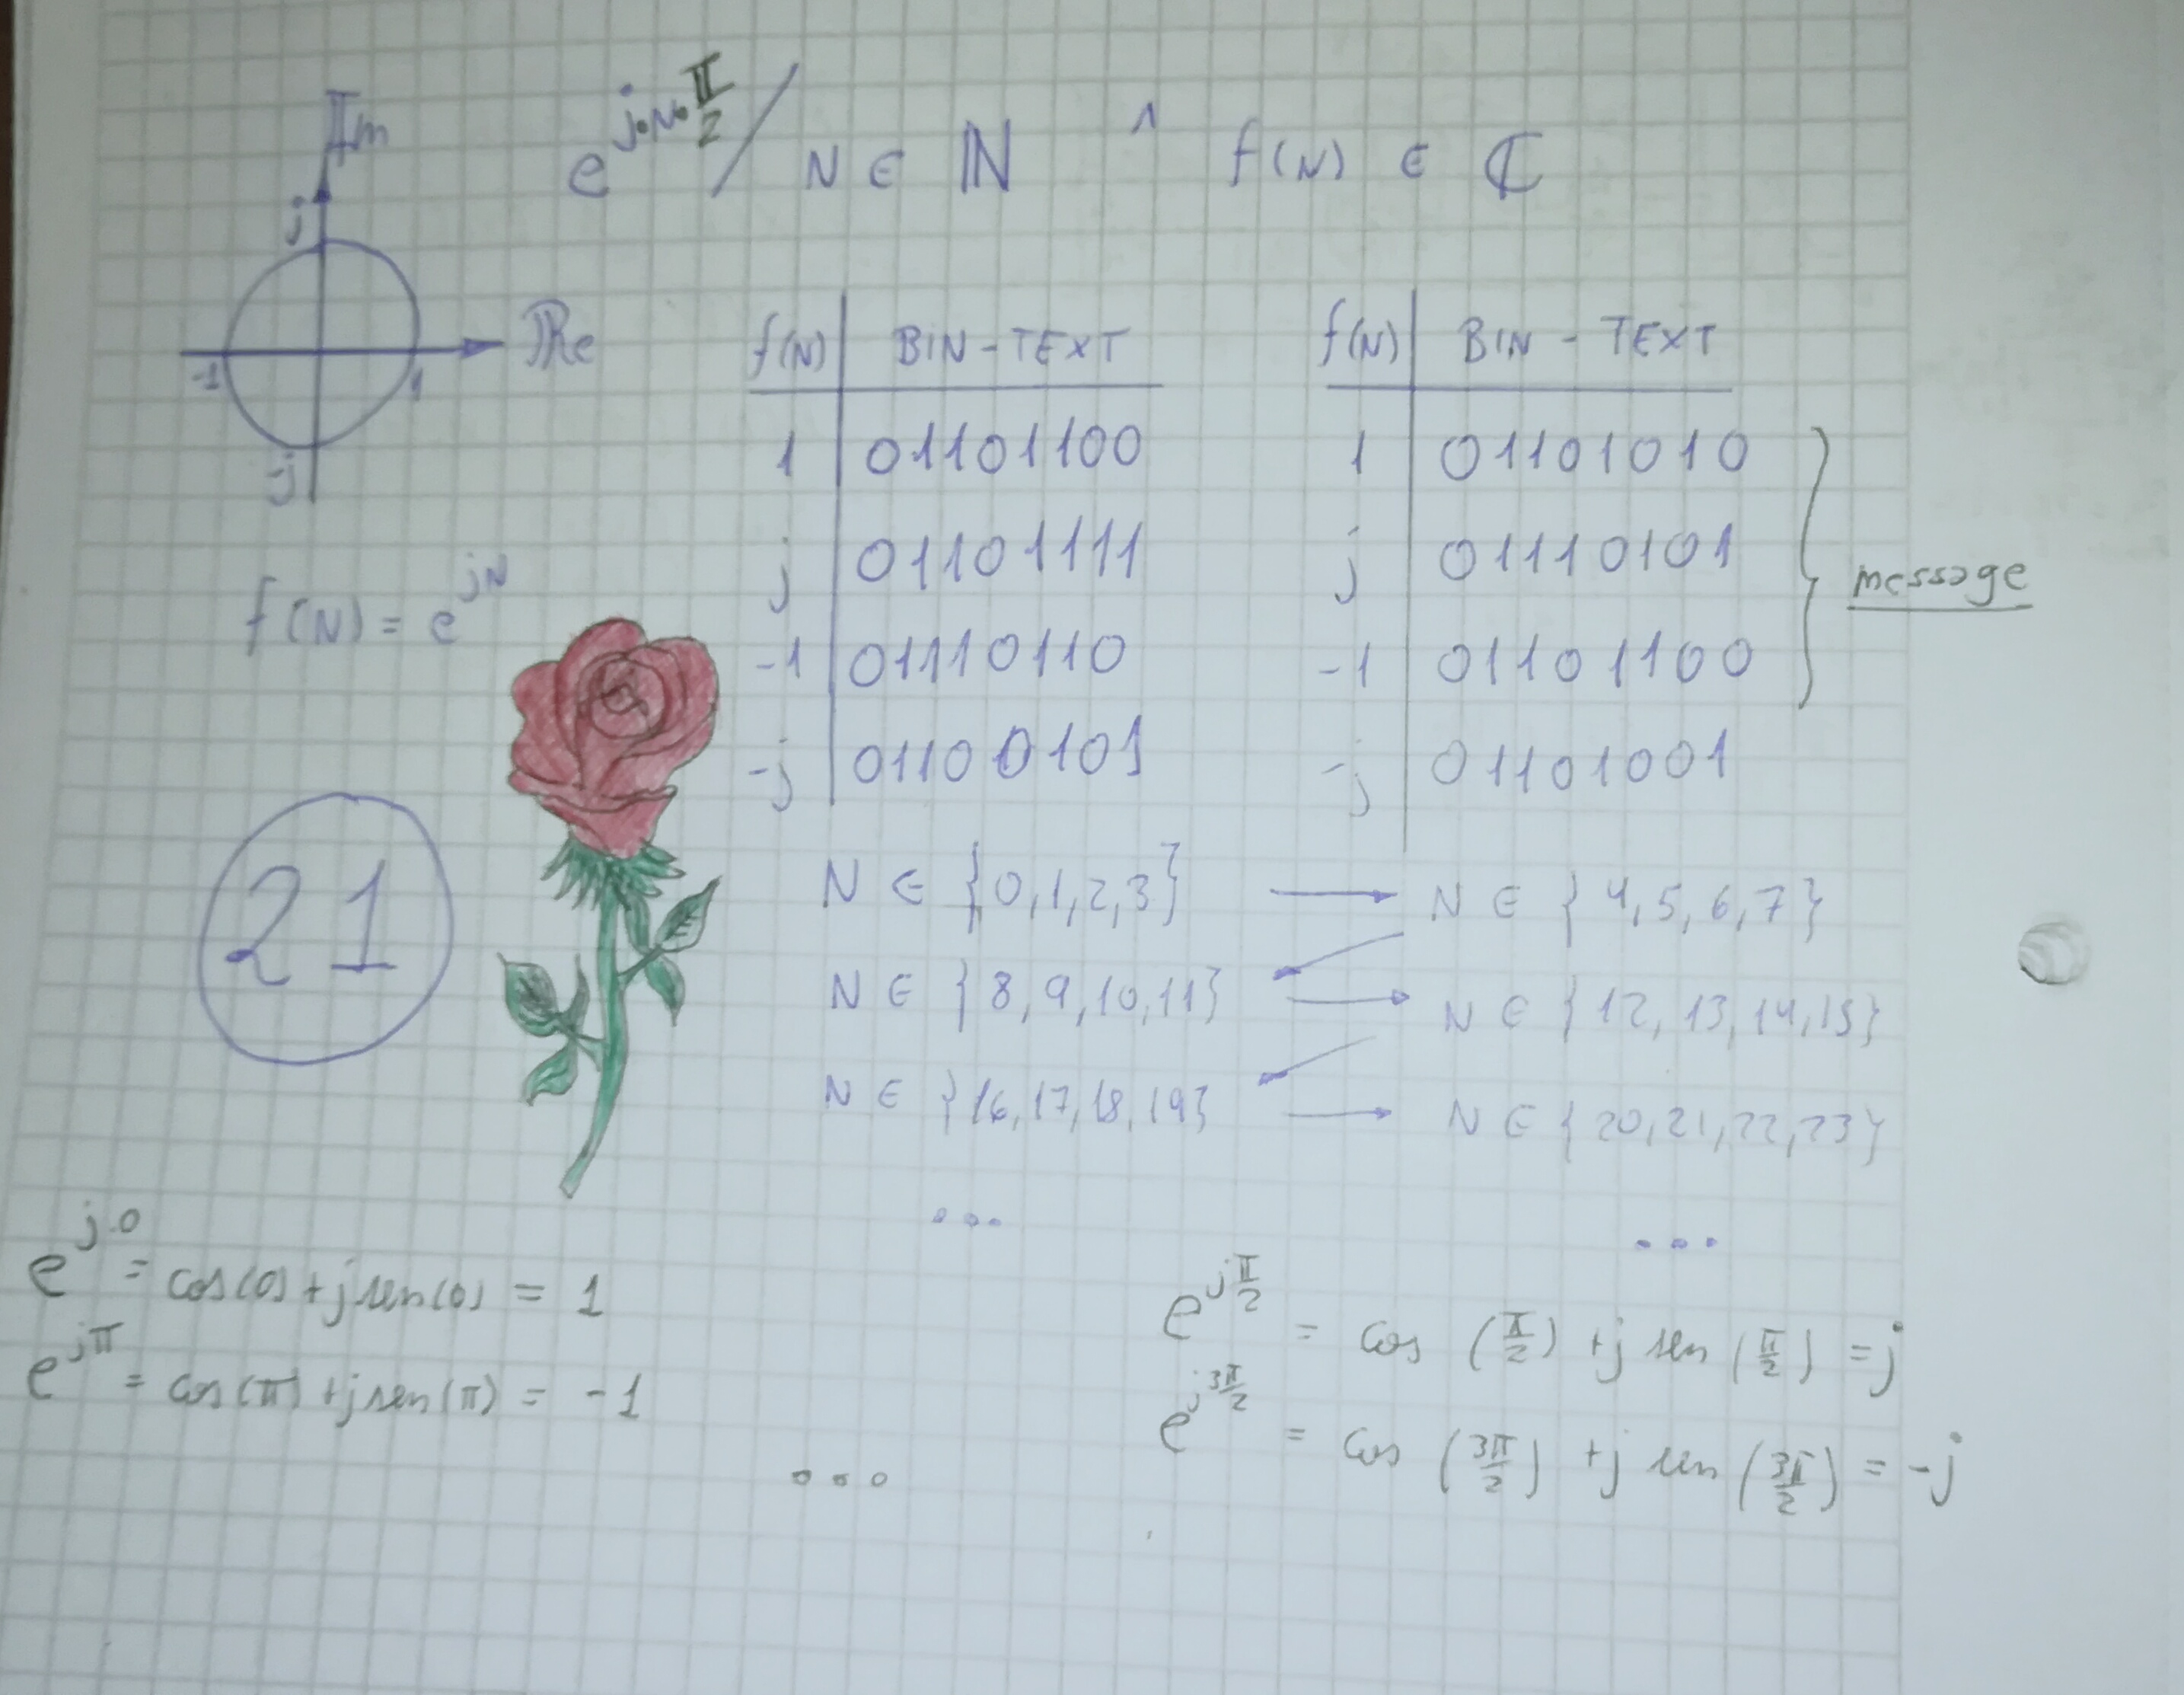 Im
e^{j·N·π/2} / N ∈ ℕ ^ f(N) ∈ ℂ
j
-1 1 Re
-j
f(N) = e^{jN}
f(N) | BIN - TEXT
1 | 01101100
j | 01101111
-1 | 01110110
-j | 01100101
f(N) | BIN - TEXT
1 | 01101010
j | 01110101
-1 | 01101100
-j | 01101001
} message
21
N ∈ {0,1,2,3} → N ∈ {4,5,6,7}
N ∈ {8,9,10,11} → N ∈ {12,13,14,15}
N ∈ {16,17,18,19} → N ∈ {20,21,22,23}
... ...
e^{j·0} = cos(0) + j sen(0) = 1
e^{jπ} = cos(π) + j sen(π) = -1
e^{jπ/2} = cos (π/2) + j sen (π/2) = j
e^{j3π/2} = cos (3π/2) + j sen (3π/2) = -j
...